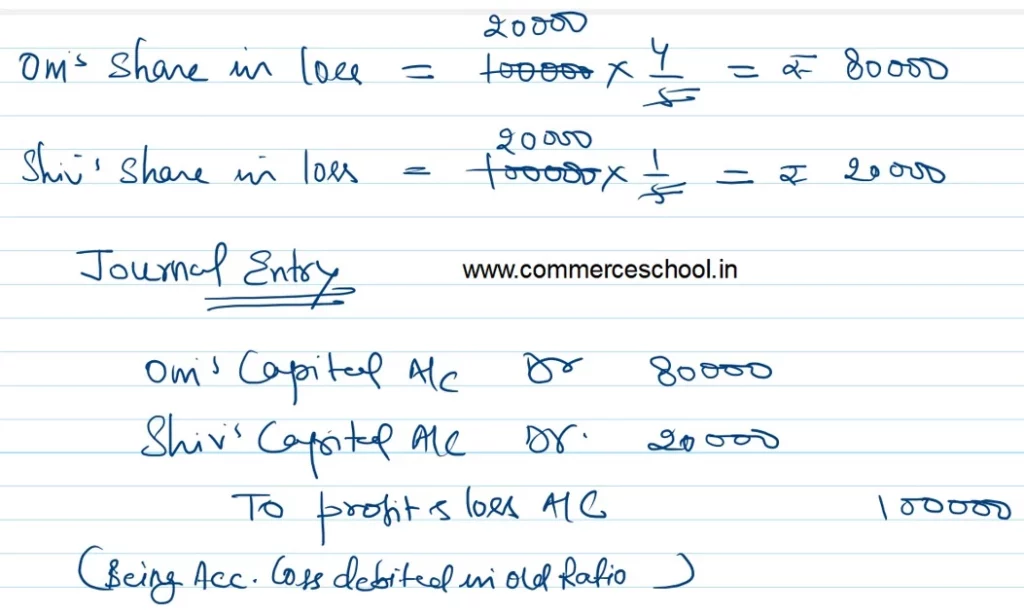 20000
Om's Share in loss = 100000 × 4/5 = ₹ 80000
20000
Shiv's Share in loss = 100000 × 1/5 = ₹ 20000
Journal Entry
www.commerceschool.in
Om's Capital A/C Dr 80000
Shiv's Capital A/C Dr. 20000
To profit & loss A/C 100000
(Being Acc. Loss debited in old Ratio)